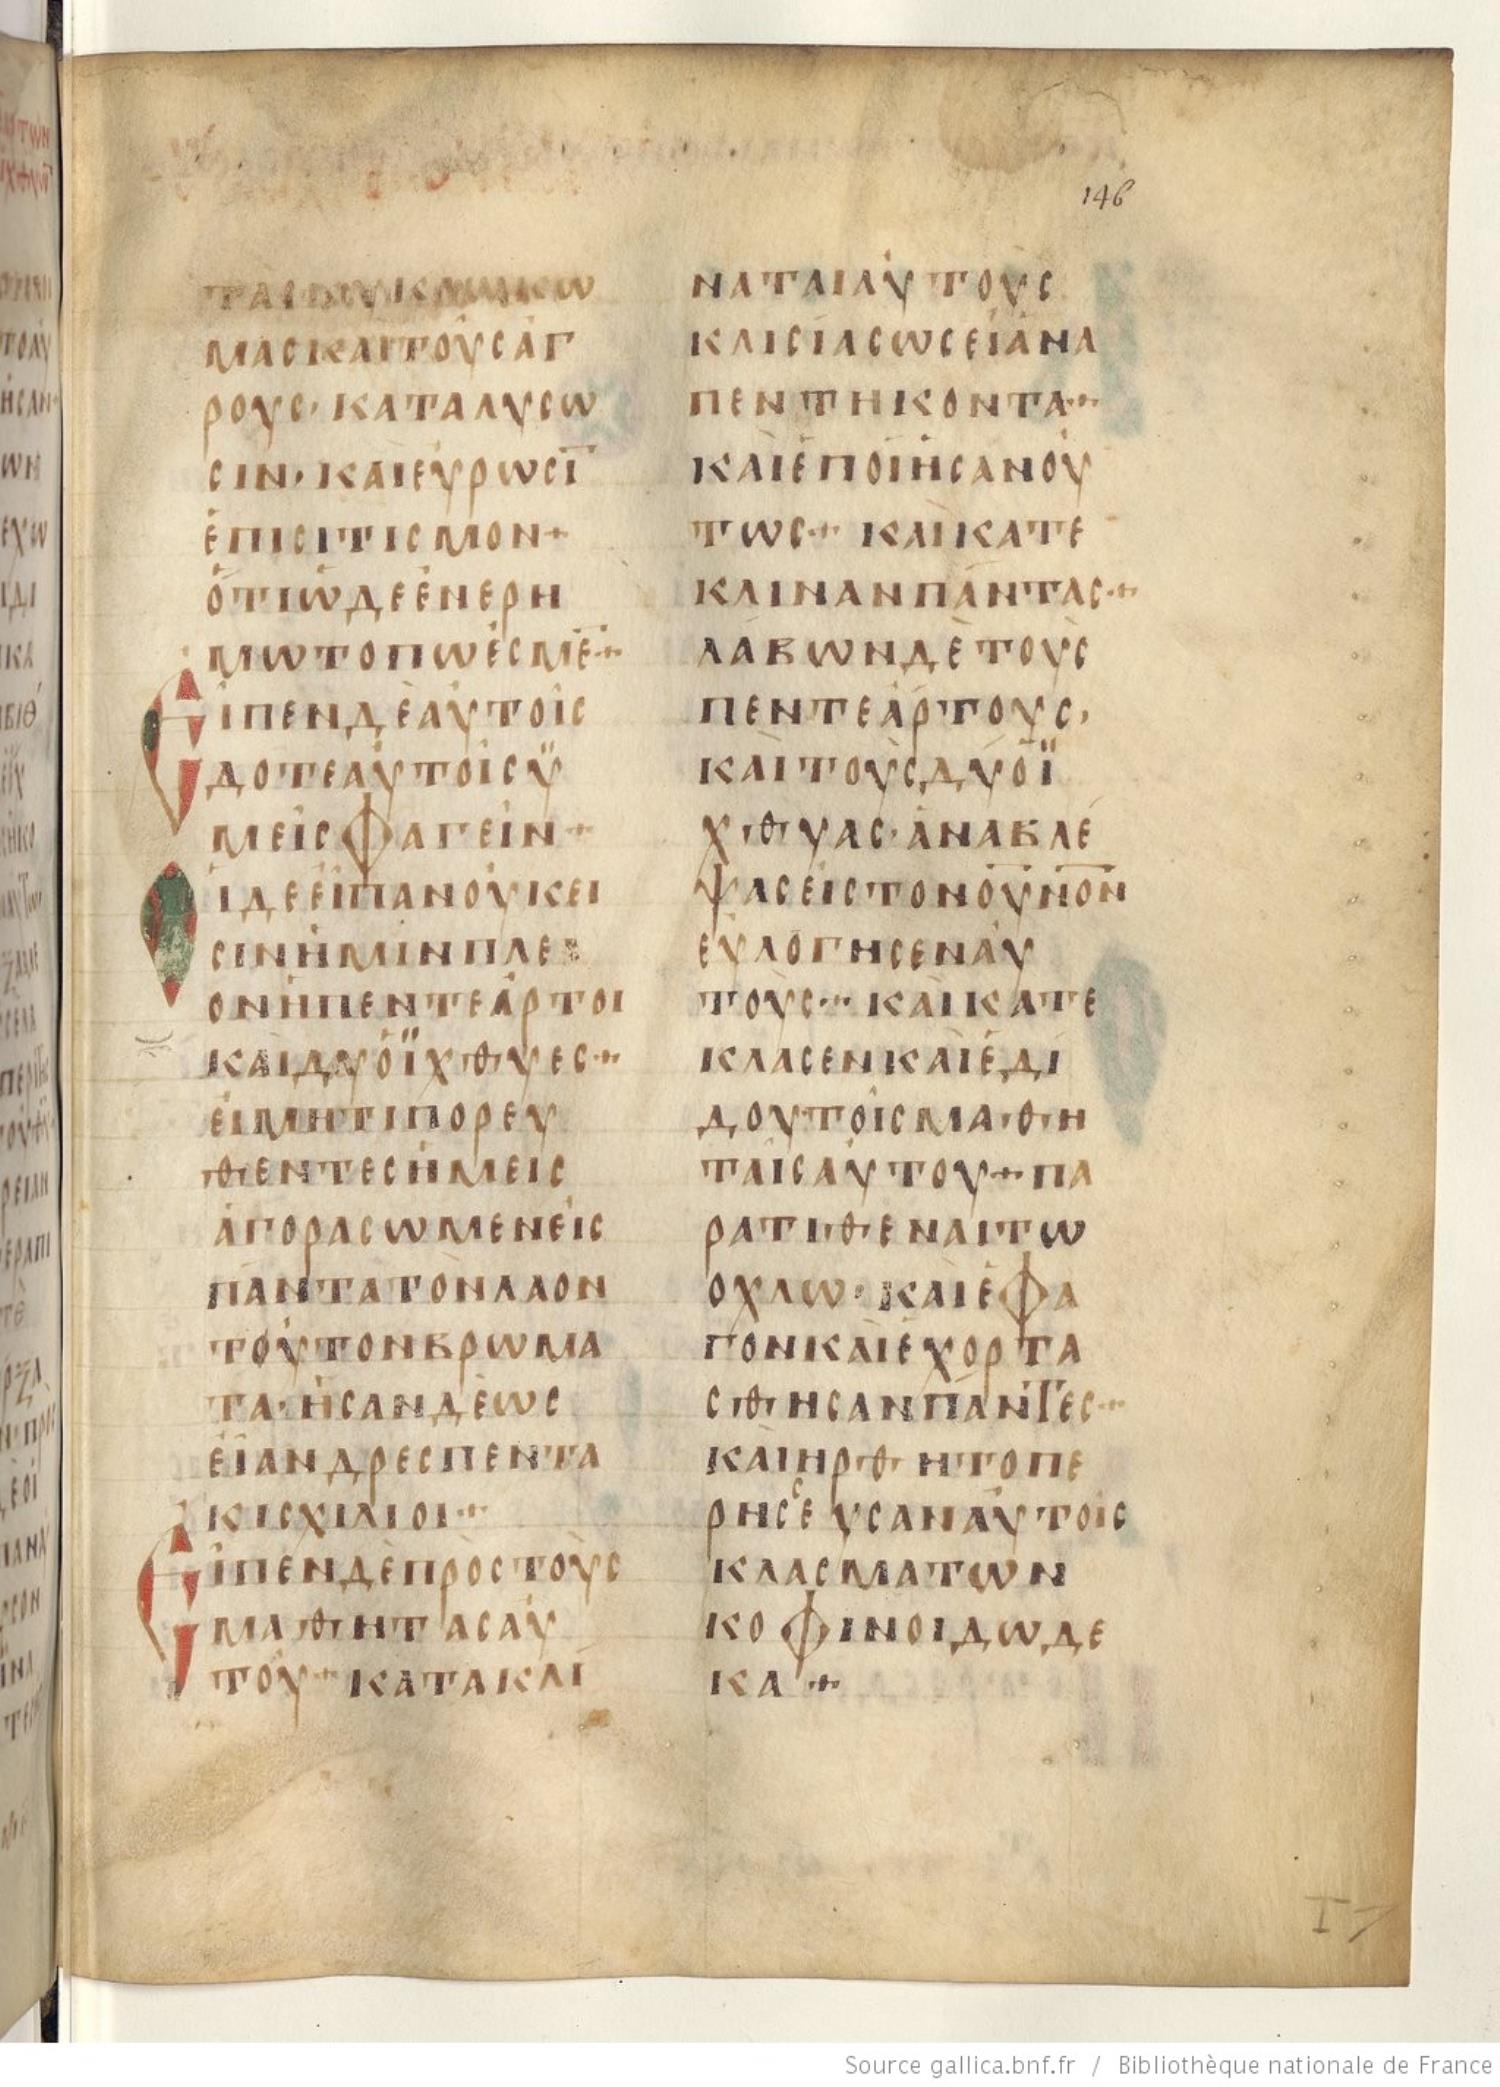 146
ΜΑСΚΑΙΤΟΥСΑΓ
ΡΟΥС· ΚΑΤΑΛΥСω
СΙΝ· ΚΑΙΕΥΡωСΙ̅
ΕΠΙСΙΤΙСΜΟΝ+
ΟΤΙωΔΕΕΝΕΡΗ
ΜωΤΟΠωΕСΜΕ̅·+
ΕΙΠΕΝΔΕΑΥΤΟΙС
ΔΟΤΕΑΥΤΟΙСΫ
ΜΕΙСΦΑΓΕΙΝ+
ΟΙΔΕΕΙΠΑΝΟΥΚΕΙ
СΙΝΗΜΙΝΠΛΕΙ
ΟΝΗΠΕΝΤΕΑΡΤΟΙ
ΚΑΙΔΥΟΪΧΘΥΕС·+
ΕΙΜΗΤΙΠΟΡΕΥ
ΘΕΝΤΕСΗΜΕΙС
ΑΓΟΡΑСωΜΕΝΕΙС
ΠΑΝΤΑΤΟΝΛΑΟΝ
ΤΟΥΤΟΝΒΡωΜΑ
ΤΑ·ΗСΑΝΔΕωС
ΕΙΑΝΔΡΕСΠΕΝΤΑ
ΚΙСΧΙΛΙΟΙ·+
ΕΙΠΕΝΔΕΠΡΟСΤΟΥС
ΜΑΘΗΤΑСΑΥ
ΤΟΥ+ΚΑΤΑΚΛΙ
ΝΑΤΑΙΑΥΤΟΥС
ΚΛΙСΙΑСωСΕΙΑΝΑ
ΠΕΝΤΗΚΟΝΤΑ·+
ΚΑΙΕΠΟΙΗСΑΝΟΥ
ΤωС·+ ΚΑΙΚΑΤΕ
ΚΛΙΝΑΝΠΑΝΤΑС·+
ΛΑΒωΝΔΕΤΟΥС
ΠΕΝΤΕΑΡΤΟΥС,
ΚΑΙΤΟΥСΔΥΟΪ
ΧΘΥΑС·ΑΝΑΒΛΕ
ΨΑСΕΙСΤΟΝΟΥ̅ΝΟ̅Ν
ΕΥΛΟΓΗСΕΝΑΥ
ΤΟΥС·+ ΚΑΙΚΑΤΕ
ΚΛΑСΕΝΚΑΙΕΔΙ
ΔΟΥΤΟΙСΜΑΘΗ
ΤΑΙСΑΥΤΟΥ+ΠΑ
ΡΑΤΙΘΕΝΑΙΤω
ΟΧΛω·ΚΑΙΕΦΑ
ΓΟΝΚΑΙΕΧΟΡΤΑ
СΘΗСΑΝΠΑΝΤΕС·+
ΚΑΙΗΡΘΗΤΟΠΕ
ΡΗССΕΥСΑΝΑΥΤΟΙС
ΚΛΑСΜΑΤωΝ
ΚΟΦΙΝΟΙΔωΔΕ
ΚΑ·+
Source gallica.bnf.fr / Bibliothèque nationale de France